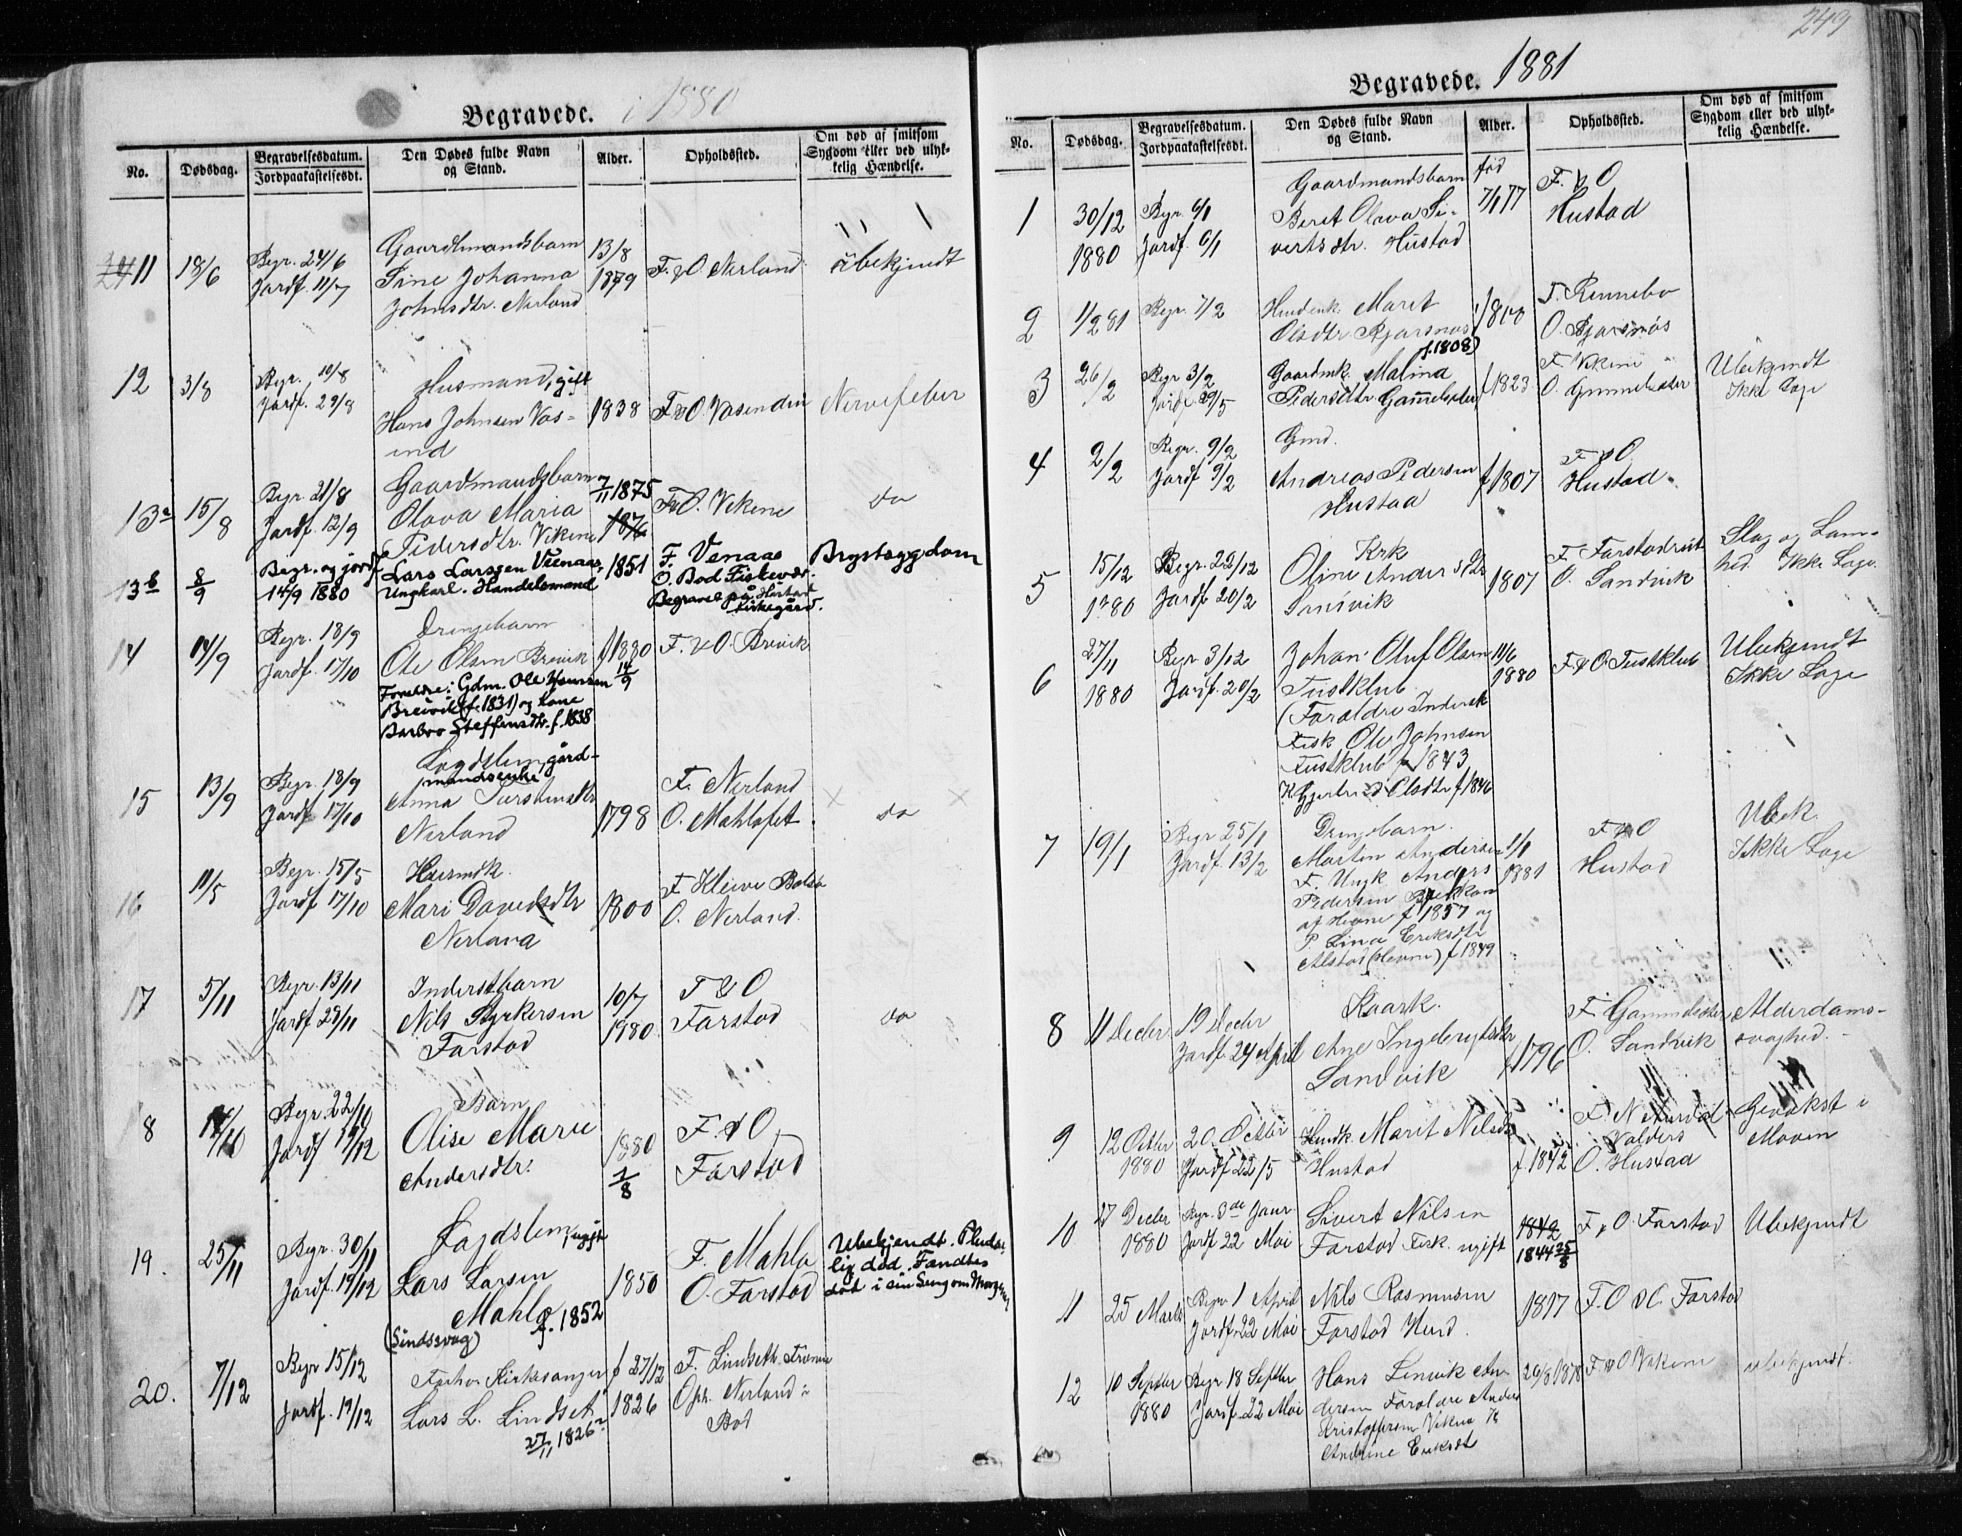 249
Begravede. i 1880
No.
Dødsdag.
Begravelsesdatum.
Jordpaakastelsesdt.
Den Dødes fulde Navn
og Stand.
Alder.
Opholdssted.
Om død af smitsom
Sygdom eller ved ulyk-
kelig Hændelse.
11
18/6
Begr. 24/6
Jordf. 11/7
Gaardmandsbarn
Sine Johanna
Johnsdtr. Nerland
13/8
1879
F. & O. Nerland
Ubekjendt
12
3/8
Begr. 10/8
Jordf. 29/8
Husmand, gift
Hans Johnsen Vas-
end
1838
F. & O. Vasenden
Nervefeber
13a
15/8
Begr. 21/8
Jordf. 12/9
Gaardmandsbarn
Olava Maria
Pedersdtr. Vikene
7/11 1875
1876
F. & O. Vikene
do
13b
8/9
Begr. og jordf.
14/9 1880
Lars Larssen Vienaas,
Ungkarl. Handelsmand
1851
F. Venaas
O. Bod Fiskevær.
Begravet på Hustad
kirkegård.
Brystsygdom
14
14/9
Begr. 18/9
Jordf. 17/10
Drengebarn
Ole Olsen Breivik
Foreldre: Gdm. Ole Hansen
Breivik (f. 1831) og kone
Barbro Steffensdtr. f. 1838
f 1880
14/9
F. & O. Breivik
15
13/9
Begr. 18/9
Jordf. 17/10
Lægdslem, gård-
mandsenke
Anna Torstensdtr
Nerland
1798
F. Nerland
O. Mahlofet
do
16
11/5
Begr. 15/5
Jordf. 17/10
Husmdk.
Mari Davidsdtr
Nerland
1800
F. Kleive Bolsø
O. Nerland.
17
5/11
Begr. 13/11
Jordf. 29/11
Inderstbarn
Nils Styrkersen
Farstad
10/7
1980
F & O
Farstad
do
18
14/10
Begr. 22/10
Jordf 19/12
Barn
Olise Marie
Andersdtr.
1880
7/8
F. & O
Farstad
19.
25/11
Begr. 30/11
Jordf. 19/12
Lægdslem, ugift
Lars Larsen
Mahlø
f. 1852
(Sindssvag)
1850
F. Mahlø
O. Farstad
Ubekjendt. Pludse-
lig død. Fandtes
død i sin Seng om Morgenen
20.
7/12
Begr 15/12
Jordf. 19/12
Forhv. Kirkesanger
Lars L. Lindset
27/11 1826?
f 27/12
1826
F. Lindseth Frænen
Oph. Nerland i
Bod
Begravede. 1881
No.
Dødsdag.
Begravelsesdatum.
Jordpaakastelsesdt.
Den Dødes fulde Navn
og Stand.
Alder.
Opholdssted.
Om død af smitsom
Sygdom eller ved ulyk-
kelig Hændelse.
1
30/12
1880
Begr. 6/1
Jordf. 6/1
Gaardmandsbarn
Beret Olava Si-
vertsdtr. Hustad
fød
7/1 77
F. & O
Hustad
2
1/2 81
Begr. 7/2
Marit
Olsdtr Bjørsnøs
f. 1808)
F. Rennebo
O. Bjørsnøs
3
26/2
Begr 3/2
Jordf. 29/5
Gaardmk. Malina
Pedersdtr Gammelsæter
f 1823
F. Vikene
O. Gammelsæter
Ubekjendt
Ikke Læge
4
2/2
Begr. 9/2
Jordf 9/2
Gmd.
Andreas Pedersen
Hustad
f 1807
F & O
Hustad.
5
15/12
1880
Begr. 22/12
Jordf. 20/2
Krk
Oline Andersdtr
Sandvik
1807
F. Farstad
O. Sandvik
Slag og Lam-
hed Ikke Læge.
6
27/11
1880
Begr 3/12
Jordf. 20/2
Johan Oluf Olsen
Tustklub.
(Forældre Inderst
Fisk Ole Johnsen
Tustklub f 1843
K Gjertrud Olsdtr f 1846
11/6
1880
F. & O. Tustklub
Ubekjendt
Ikke Læge
7
19/1
Begr 25/1
Jordf. 13/2
Drengebarn.
Martin Andersen
F. Ungk Anders
Pedersen
af Hevne f 1857 og
P. Lina Eriksdtr
Alstad (Hevne) f 1849
1/1
1881
F & O
Hustad
Ubek.
Ikke Læge
8
11 Decbr
19 Decbr
Jordf. 24 April
Kaark.
Ane Ingebrigtsdtr
Sandvik
f 1796
F. Gammelsæter
O. Sandvik
Alderdoms-
svaghed.
9
12 Octbr
1880
20 Octbr
Jordf 22/5
Husmk. Marit Nilsdtr
Hustad
f 1842
F. N. Aurdal
Valders
O. Hustad
Gevækst i
Maven
10
27 Decbr
1880
Begr. 3de Janr
Jordf 22 Mai
Sivert Nilsen
Farstad Fisk. ugift
1842
1844 25/8
F. & O. Farstad
Ubekjendt
11
25 Marts
Begr. 1 April
Jordf. 22 Mai
Nils Rasmusen
Farstad Husd.
1817
F. O & O. Farstad
12
10 Septbr
1880
Begr 18 Septbr
Jordf. 22 Mai
Hans Linvik An-
dersen Forældre Anders
Kristoffersen Vikene K
Andrine Eriksdt
20/8 1878
F. & O Vikene
ubekjendt.